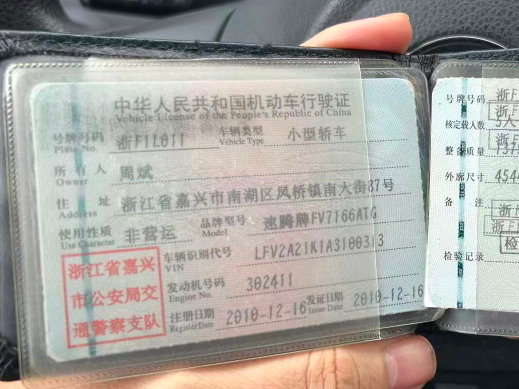 中华人民共和国机动车行驶证
Vehicle License of the People's Republic of China
号牌号码 浙F1L011 车辆类型 小型轿车
Plate No. Vehicle Type
所有人 周斌
Owner
住址 浙江省嘉兴市南湖区凤桥镇南大街87号
Address
使用性质 非营运 品牌型号 速腾牌FV7166ATG
Use Character Model
浙江省嘉兴
市公安局交
通警察支队
车辆识别代号 LFV2A21K1A3100313
VIN
发动机号码 302411
Engine No.
注册日期 2010-12-16 发证日期 2010-12-16
Register Date Issue Date
号牌号码 浙F
核定载人数
整备质量
外廓尺寸 454
备注
检验记录